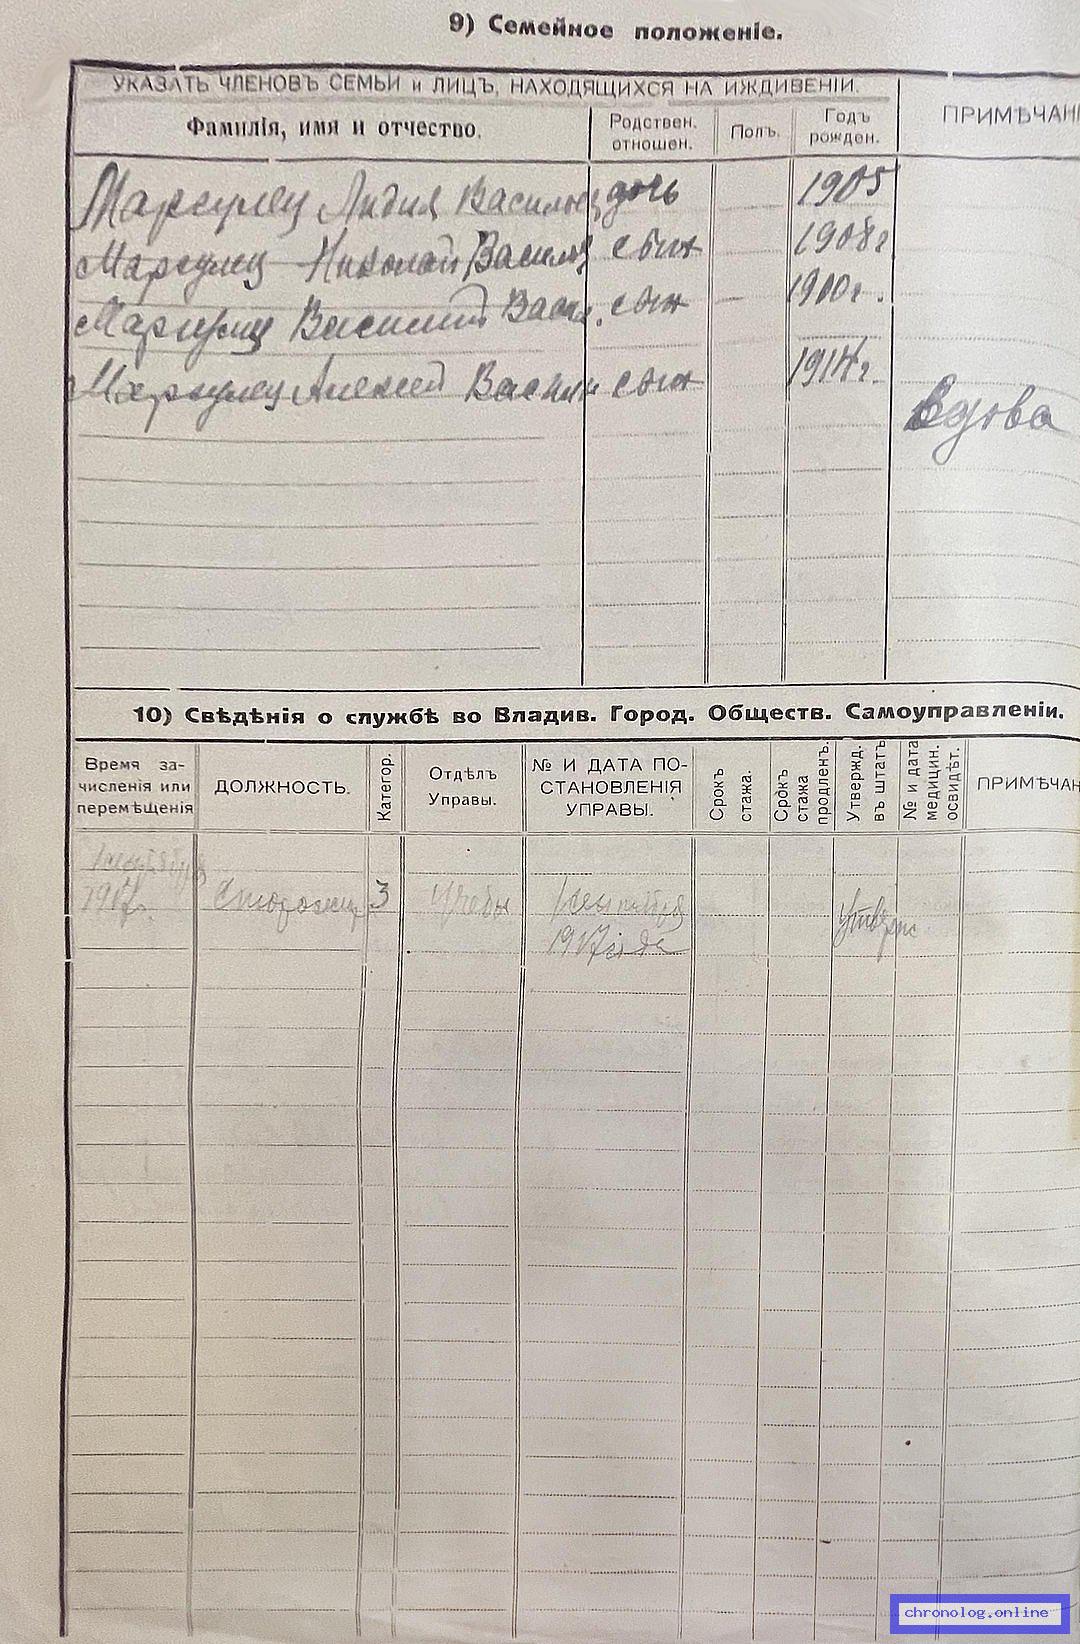 9) Семейное положеніе.
УКАЗАТЬ ЧЛЕНОВЪ СЕМЬИ и ЛИЦЪ, НАХОДЯЩИХСЯ НА ИЖДИВЕНІИ.
ПРИМѢЧАНІ
Фамилія, имя и отчество.
Родствен. отношен.
Полъ.
Годъ рожден.
Маргулец Лидия Васильев дочь 1905
Маргулец Николай Василь сын 1908 г
Маргулец Василий Васи. сын — 1910 г.
Маргулец Алексей Васил сын 1914 г.
Вдова
10) Свѣдѣнія о службѣ во Владив. Город. Обществ. Самоуправленіи.
Время за-
численія или
перемѣщенія
ДОЛЖНОСТЬ.
Категор.
Отдѣлъ
Управы.
№ И ДАТА ПО-
СТАНОВЛЕНІЯ
УПРАВЫ.
Срокъ
стажа.
Срокъ
стажа
продлен.
Утвержд.
въ штатъ
№ и дата
медицин.
освидѣт.
ПРИМѢЧАН
1 сентября
1917 г.
Сторожих
3
Учебн
1 сентября
1917 года
Утвержд
chronolog.online